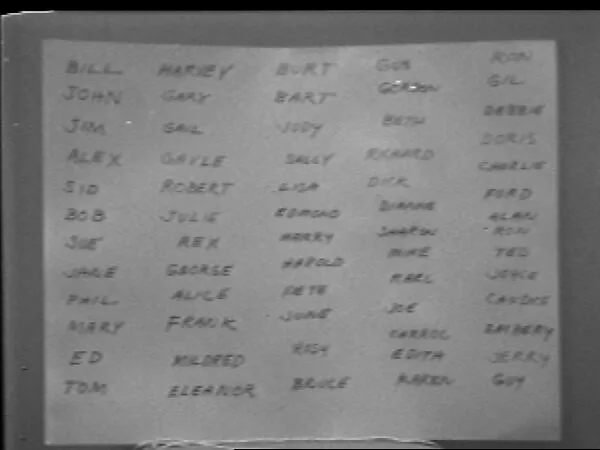 BILL HARVEY BURT GUS RON
JOHN GARY BART GORDON GIL
JIM GAIL JUDY BETH DEBBIE
ALEX GAYLE SALLY RICHARD DORIS
SID ROBERT LISA DICK CHARLIE
BOB JULIE EDMOND DIANNE FORD
SUE REX HARRY SHARON ALAN
JANE GEORGE HAROLD MIKE RON
PHIL ALICE PETE KARL TED
MARY FRANK JUNE JOE JOYCE
ED MILDRED CARROL CANDICE
TOM ELEANOR BRUCE EDITH JERRY
KAREN GUY